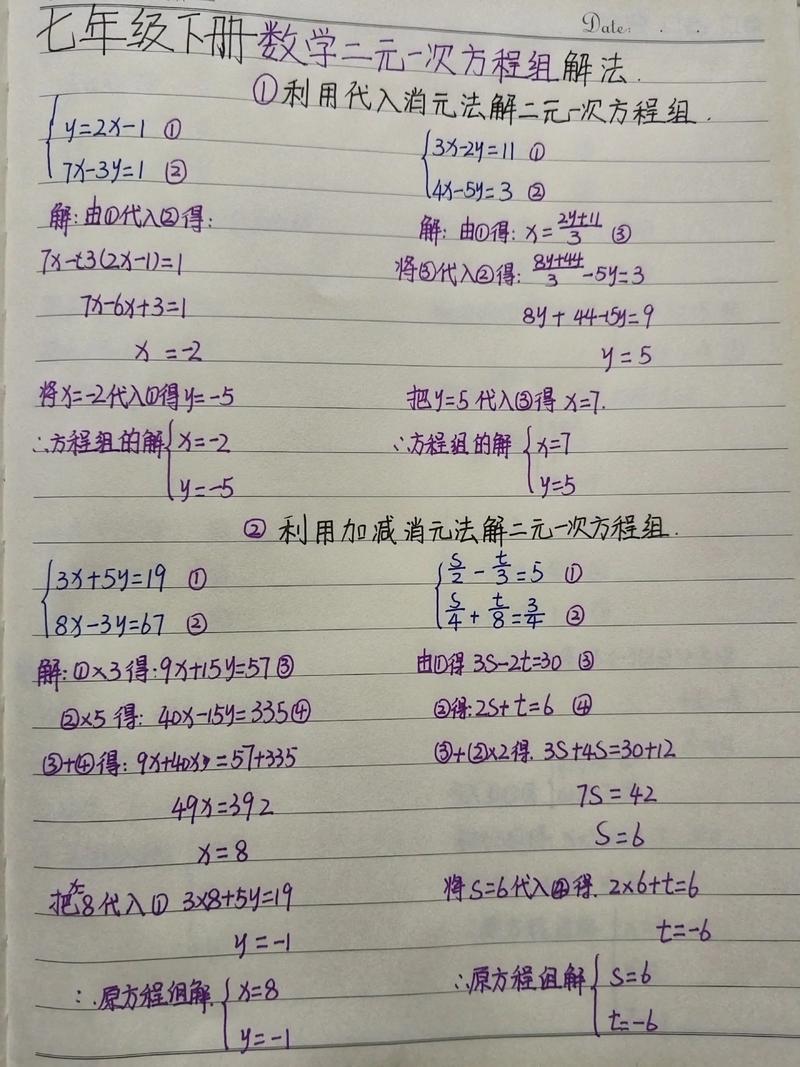 Date: . .
七年级下册数学二元一次方程组解法.
①利用代入消元法解二元一次方程组.
y=2x-1 ①
7x-3y=1 ②
解:由①代入②得:
7x-3(2x-1)=1
7x-6x+3=1
x =-2
将x=-2代入①得y=-5
∴方程组的解{x=-2
y=-5
3x-2y=11 ①
4x-5y=3 ②
解: 由①得: x=\frac{2y+11}{3} ③
将③代入②得: \frac{8y+44}{3}-5y=3
8y+44-15y=9
y=5
把y=5代入③得 x=7.
∴方程组的解{x=7
y=5
② 利用加减消元法解二元一次方程组.
3x+5y=19 ①
8x-3y=67 ②
解:①×3得:9x+15y=57③
②×5得: 40x-15y=335④
③+④得: 9x+40x=57+335
49x=392
x=8
把x=8代入① 3×8+5y=19
y=-1
∴原方程组解{x=8
y=-1
\frac{s}{2}-\frac{t}{3}=5 ①
\frac{s}{4}+\frac{t}{8}=\frac{3}{4} ②
由①得 3s-2t=30 ③
②得:2s+t=6 ④
③+②×2得. 3s+4s=30+12
7s=42
s=6
将s=6代入④得. 2×6+t=6
t=-6
∴原方程组解{s=6
t=-6